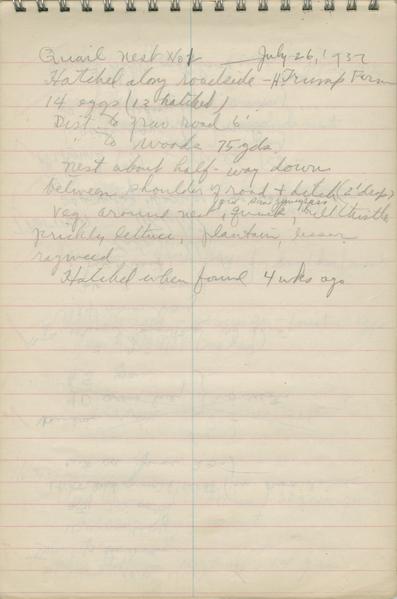 Quail nest No 1 — July 26, 1937
Hatched along roadside - H. Trump Farm
14 eggs (12 hatched)
Dist. to grav road 6'
" to woods 75 yds.
nest about half-way down
between shoulder of road + ditch (2' deep)
Veg. around nest, quack, Bull thistle
prickly lettuce, plantain, lesser
ragweed
Hatched when found 4 wks ago